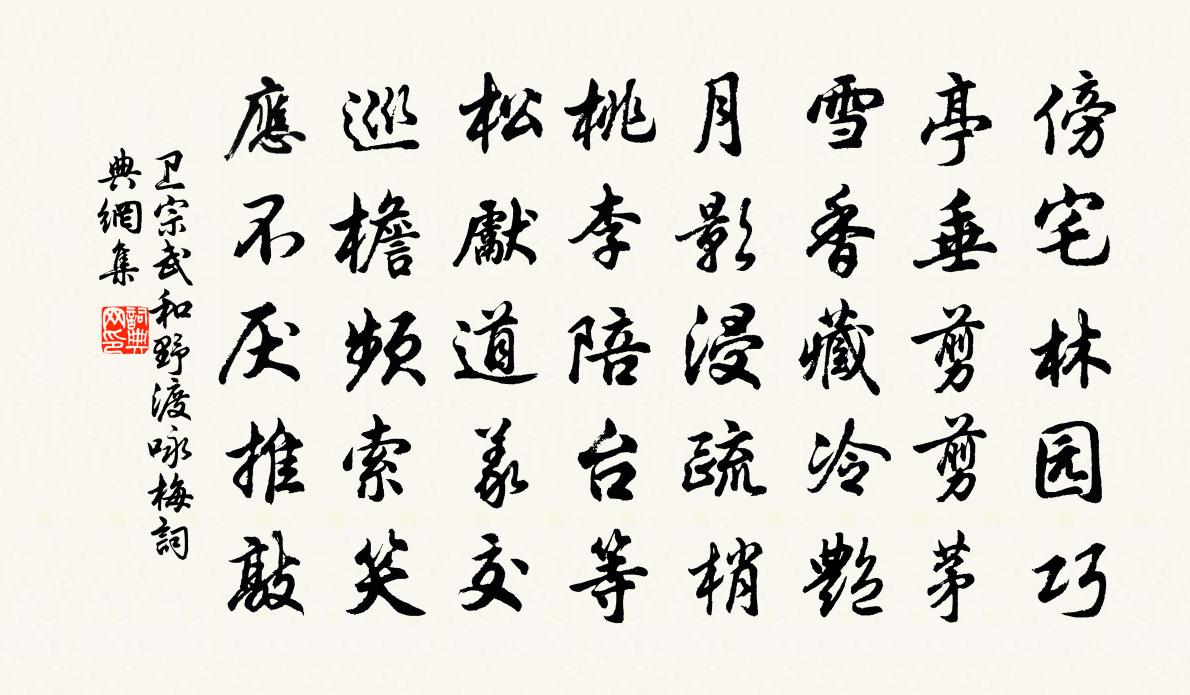 傍宅林园巧
亭垂剪剪茅
雪香藏冷艷
月影浸疏梢
桃李陪台等
松獻道義交
巡檐頻索笑
應不厌推敲
卫宗武和野渡咏梅詞
典網集
詞典
网印